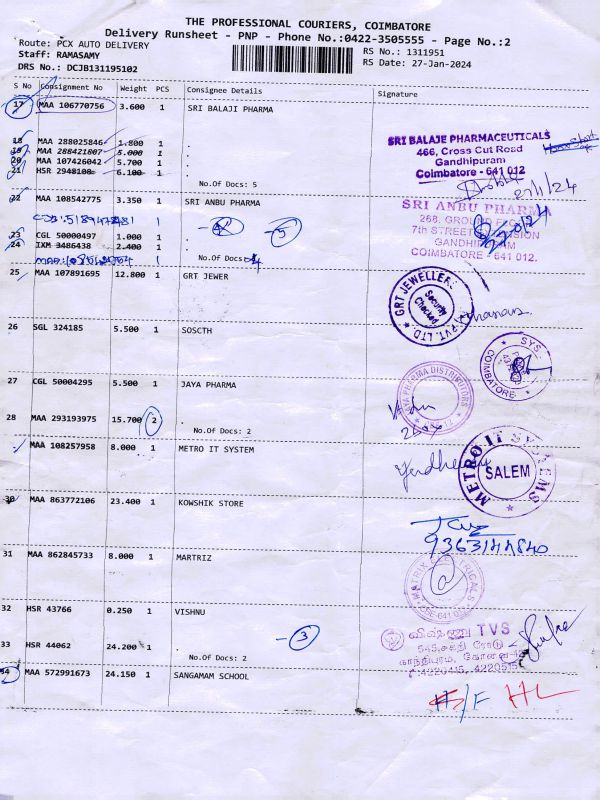 THE PROFESSIONAL COURIERS, COIMBATORE
Delivery Runsheet - PNP - Phone No.:0422-3505555 - Page No.:2
Route: PCX AUTO DELIVERY
RS No.: 1311951
Staff: RAMASAMY
RS Date: 27-Jan-2024
DRS No.: DCJB131195102
S No Consignment No Weight PCS Consignee Details Signature
17 MAA 106770756 3.600 1 SRI BALAJI PHARMA
18 MAA 288025846 1.800 1 .
19 MAA 288421807 5.000 1 .
20 MAA 107426042 5.700 1 .
21 HSR 2948108 6.100 1 .
No.Of Docs: 5
SRI BALAJE PHARMACEUTICALS
466, Cross Cut Road
Gandhipuram
Coimbatore - 641 012
27/1/24
22 MAA 108542775 3.350 1 SRI ANBU PHARMA
4 5
23 CGL 50000497 1.000 1 .
24 IXM 3486438 2.400 1 .
No.Of Docs: 4
SRI ANBU PHARMA
268, GROUND FLOOR
7th STREET EXTENSION
GANDHIPURAM
COIMBATORE - 641 012.
25 MAA 107891695 12.800 1 GRT JEWER
GRT JEWELLERS
PVT. LTD.
Security
Checked
26 SGL 324185 5.500 1 SOSCTH
SYS
COIMBATORE
27 CGL 50004295 5.500 1 JAYA PHARMA
DISTRIBUTORS
28 MAA 293193975 15.700 2 .
No.Of Docs: 2
MAA 108257958 8.000 1 METRO IT SYSTEM
METRO IT SYSTEMS
SALEM
30 MAA 863772106 23.400 1 KOWSHIK STORE
31 MAA 862845733 8.000 1 MARTRIZ
32 HSR 43766 0.250 1 VISHNU
3
33 HSR 44062 24.200 1 .
No.Of Docs: 2
விஷ்ணு TVS
545, சக்தி ரோடு
காந்திபுரம், கோவை-12
4220415, 4220515
34 MAA 572991673 24.150 1 SANGAMAM SCHOOL
H/F HL